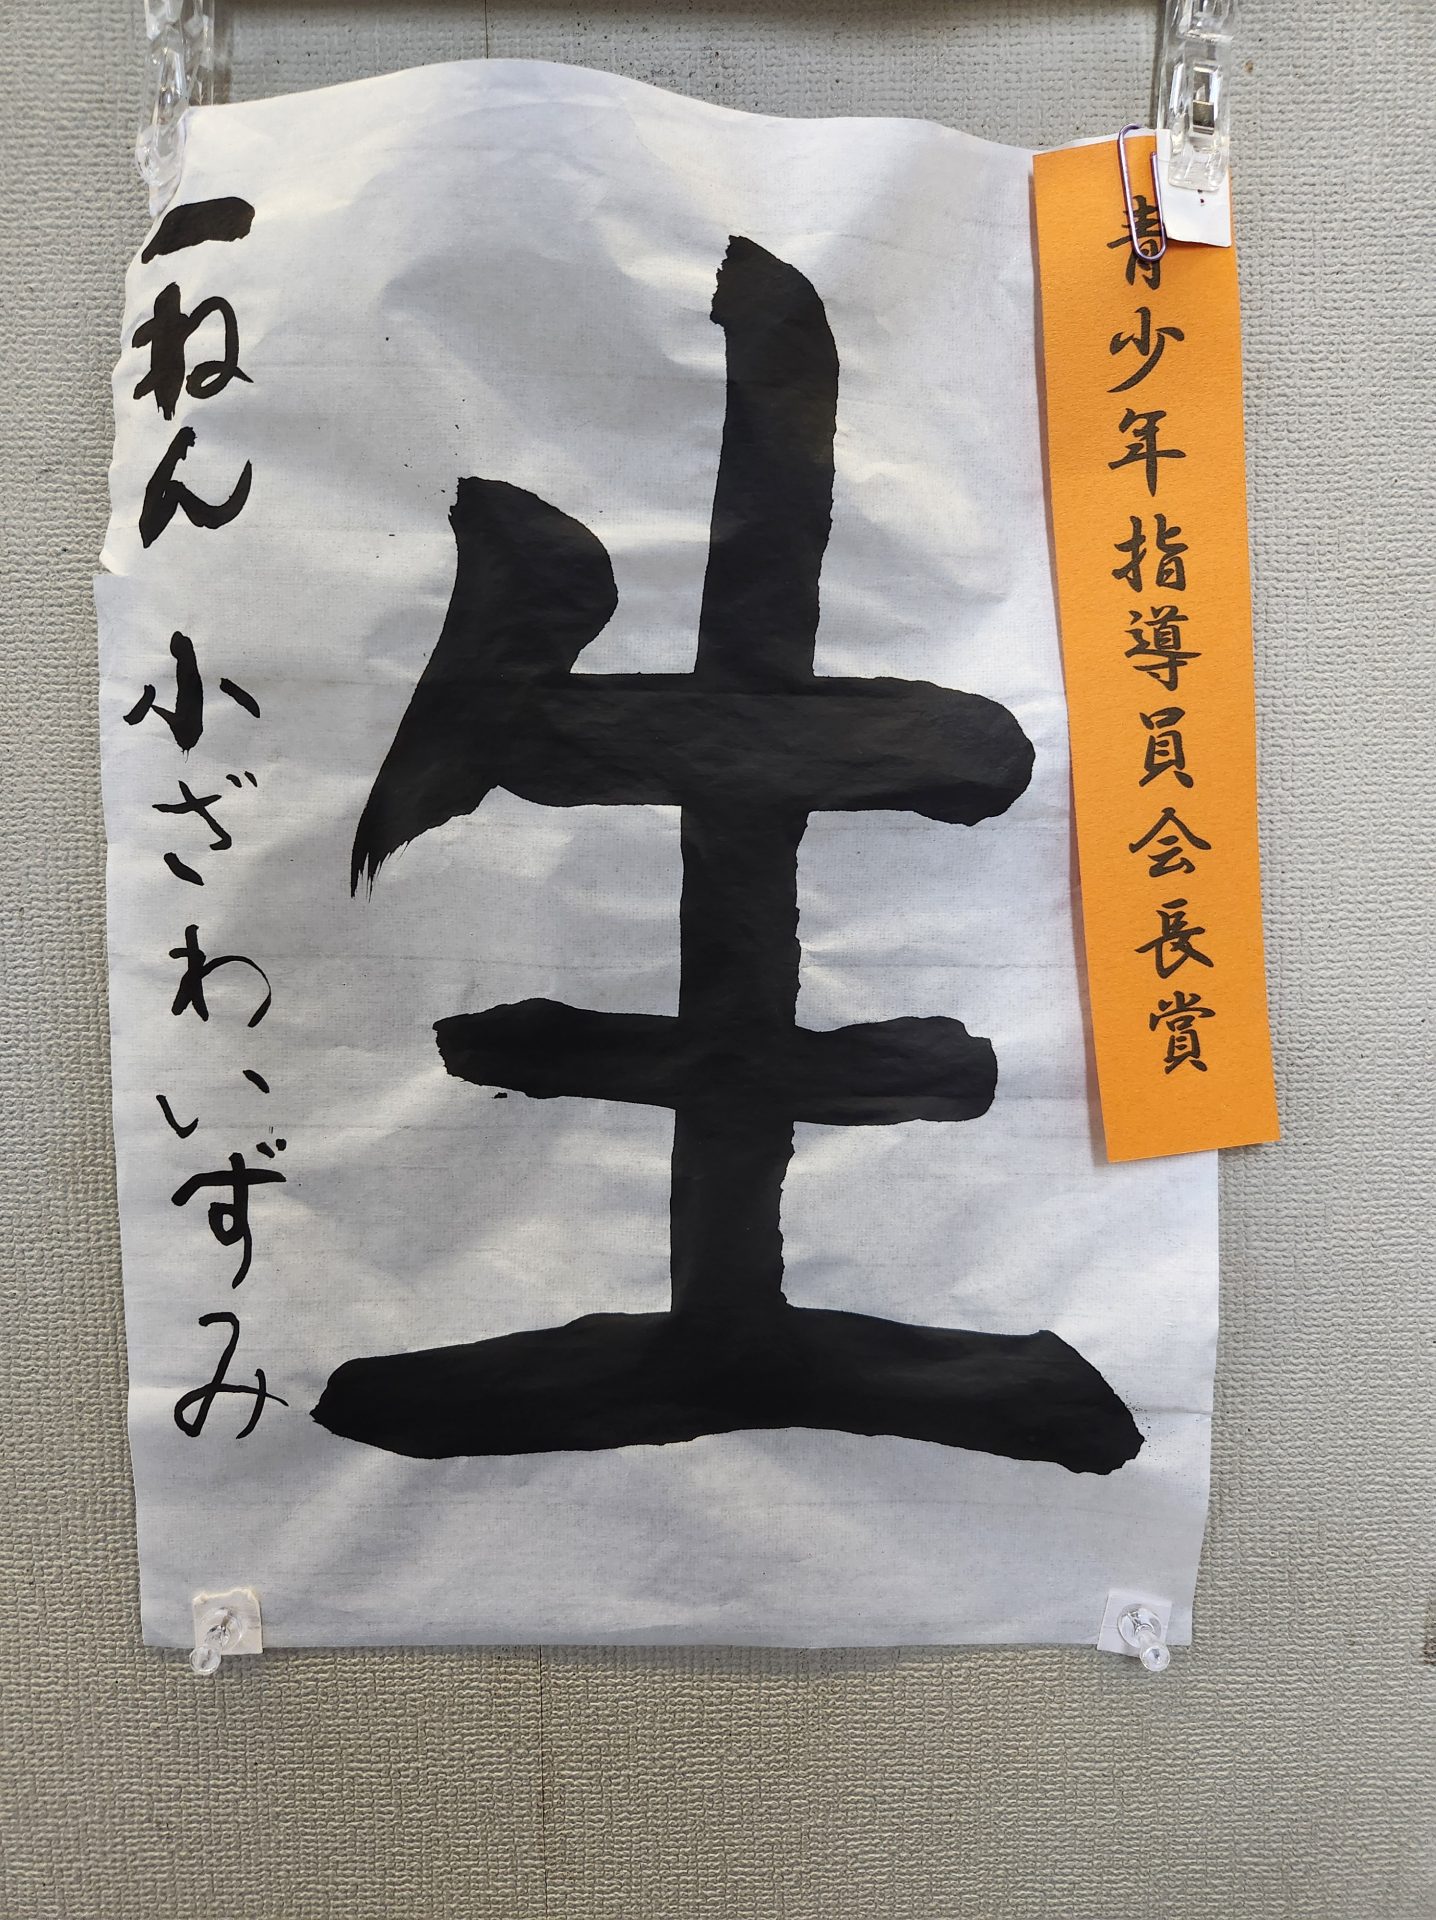 青少年指導員会長賞
生
一ねん 小ざわいずみ